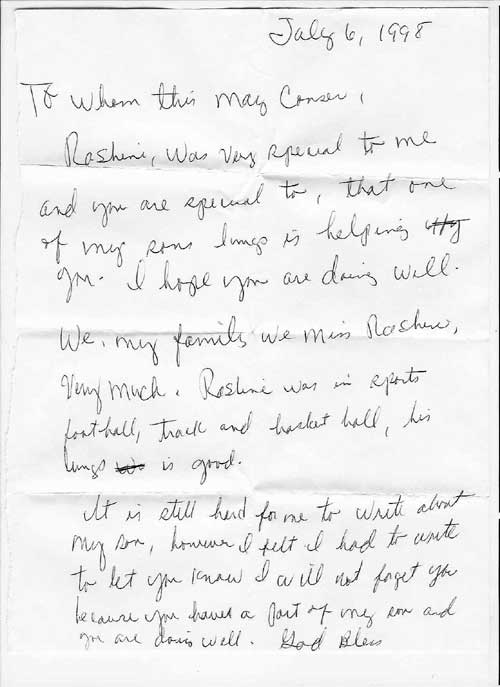 July 6, 1998
To Whom this May Conser,
Rashení, Was Very special to me
and you are special to, that one
of my sons lungs is helping
you. I hope you are doing well.
We, my family we miss
Very Much. was in sports
football, track and basket ball, his
lungs is good.
It is still hard for me to write about
my son, however I felt I had to write
to let you know I will not forget you
because you have a part of my son and
you are doing well. God Bless